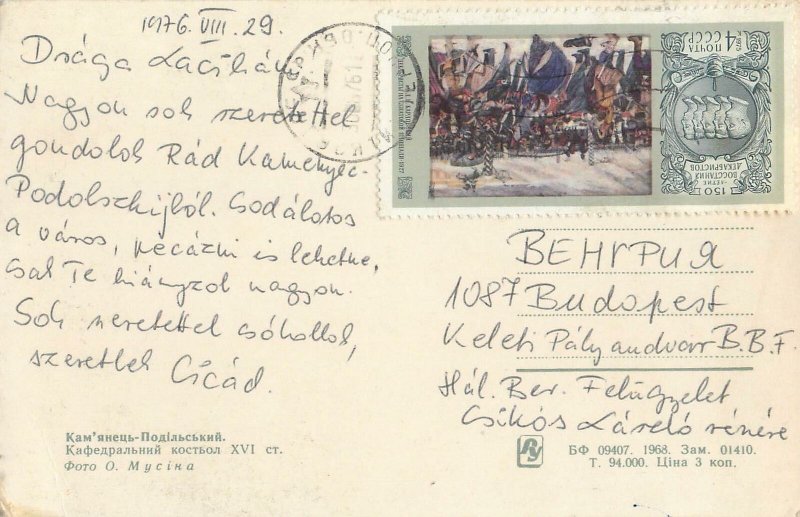 1976. VIII. 29.
Drága Lacikám
Nagyon sok szeretettel
gondolok Rád Kamenyec-
Podolszkijból. Csodálatos
a város, pecázni is lehetne,
csak Te hiányzol nagyon.
Sok szeretettel csókollak,
szeretlek Cicád.
Кам'янець-Подільський.
Кафедральний костьол XVI ст.
Фото О. Мусіна
ПОЧТА
СССР
4 к
1975
150 -ЛЕТИЕ
ВОССТАНИЯ
ДЕКАБРИСТОВ
ВЕНГРИЯ
1087 Budapest
Keleti Pályaudvar B.B.F.
Hál. Ber. Felügyelet
Csikós László részére
БФ 09407. 1968. Зам. 01410.
Т. 94.000. Ціна 3 коп.